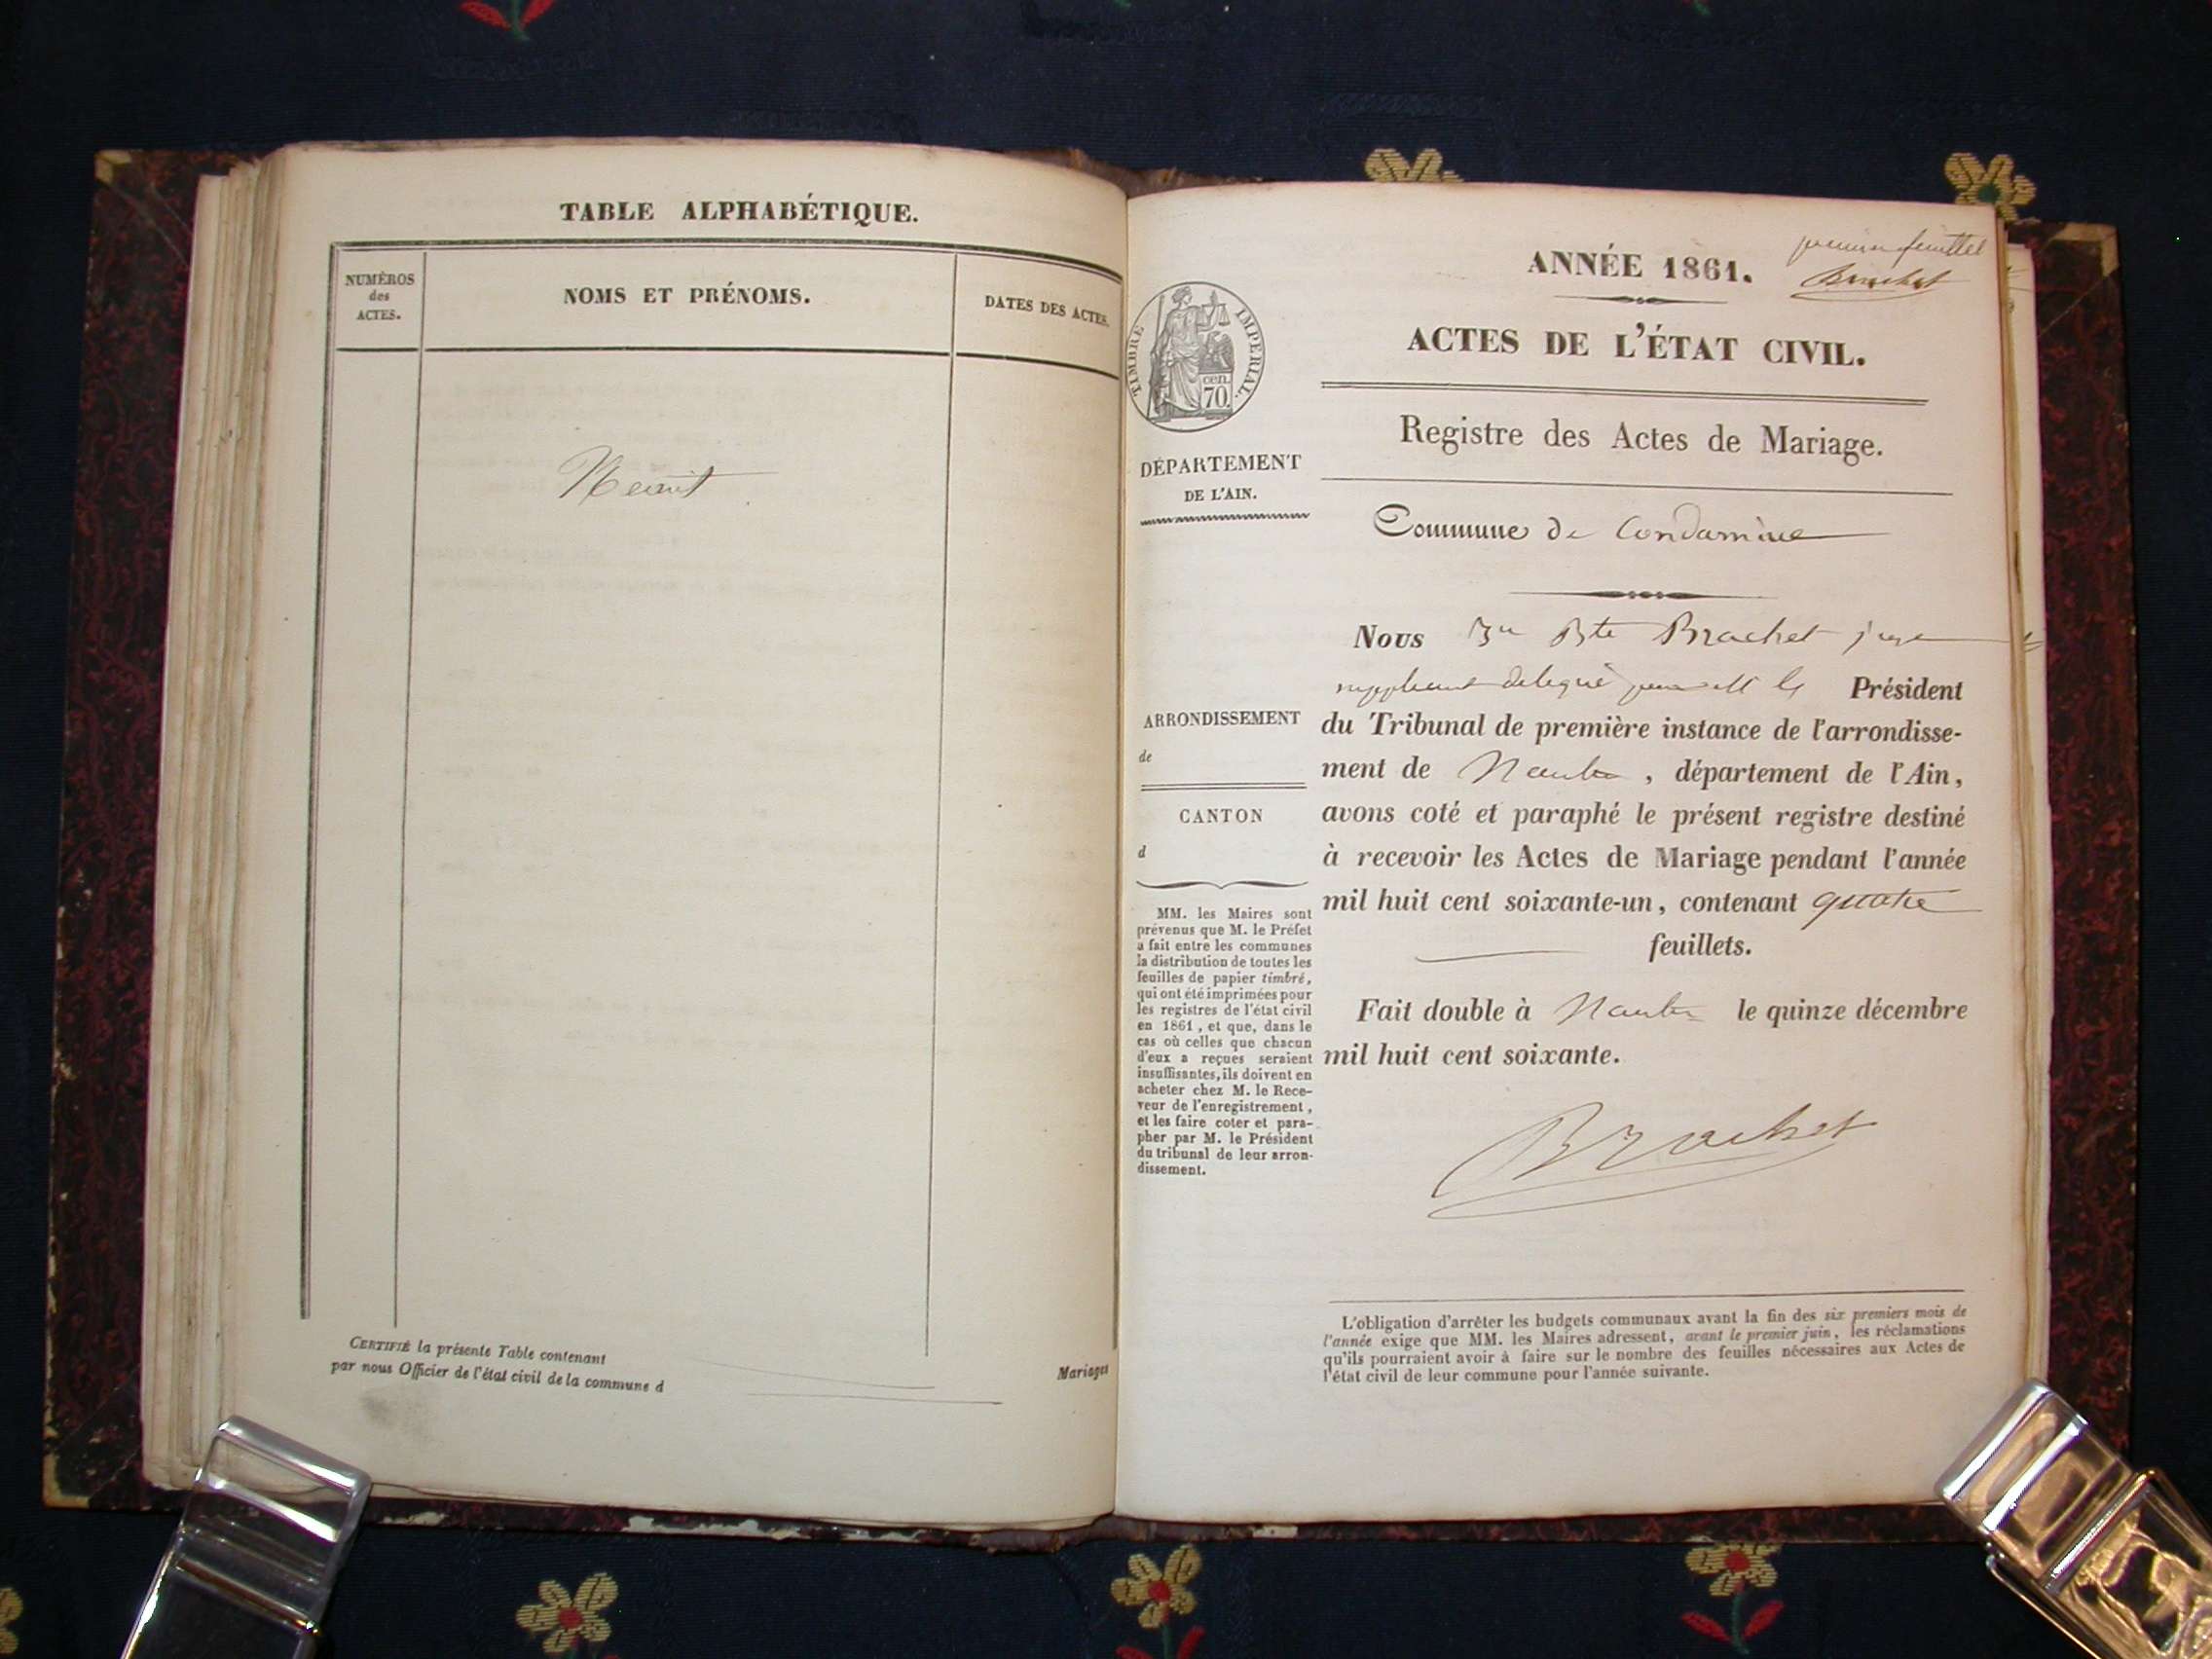 TABLE ALPHABÉTIQUE.
NUMÉROS
des
ACTES.
NOMS ET PRÉNOMS.
DATES DES ACTES.
Neant
CERTIFIÉ la présente Table contenant
par nous Officier de l'état civil de la commune d
Mariages
premier feuillet
Brachet
ANNÉE 1861.
ACTES DE L'ÉTAT CIVIL.
Registre des Actes de Mariage.
Commune de Condamine
TIMBRE IMPÉRIAL.
cen.
70.
DÉPARTEMENT
DE L'AIN.
ARRONDISSEMENT
de
CANTON
d
MM. les Maires sont
prévenus que M. le Préfet
a fait entre les communes
la distribution de toutes les
feuilles de papier timbré,
qui ont été imprimées pour
les registres de l'état civil
en 1861, et que, dans le
cas où celles que chacun
d'eux a reçues seraient
insuffisantes, ils doivent en
acheter chez M. le Rece-
veur de l'enregistrement,
et les faire coter et para-
pher par M. le Président
du tribunal de leur arron-
dissement.
Nous Jn Bte Brachet juge
suppleant delegué par M le Président
du Tribunal de première instance de l'arrondisse-
ment de Nantua, département de l'Ain,
avons coté et paraphé le présent registre destiné
à recevoir les Actes de Mariage pendant l'année
mil huit cent soixante-un, contenant quatre
feuillets.
Fait double à Nantua le quinze décembre
mil huit cent soixante.
Brachet
L'obligation d'arrêter les budgets communaux avant la fin des six premiers mois de
l'année exige que MM. les Maires adressent, avant le premier juin, les réclamations
qu'ils pourraient avoir à faire sur le nombre des feuilles nécessaires aux Actes de
l'état civil de leur commune pour l'année suivante.